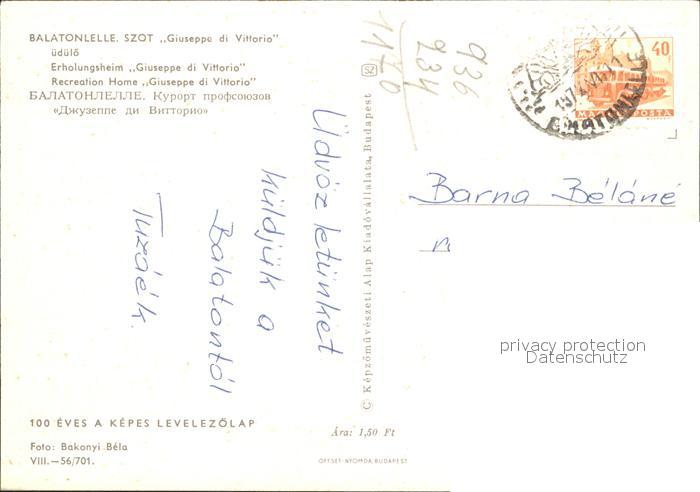 BALATONLELLE. SZOT „Giuseppe di Vittorio"
üdülő
Erholungsheim „Giuseppe di Vittorio"
Recreation Home „Giuseppe di Vittorio"
БАЛАТОНЛЕЛЛЕ. Курорт профсоюзов
«Джузеппе ди Витторио»
936
234
1170
SZ
40
MAGYAR POSTA
BALATONLELLE
Üdvözletünket
küldjük a
Balatontól
Tuzáék.
© Képzőművészeti Alap Kiadóvállalata, Budapest
Barna Béláné
privacy protection
Datenschutz
100 ÉVES A KÉPES LEVELEZŐLAP
Foto: Bakonyi Béla
VIII.—56/701.
Ára: 1,50 Ft
OFFSET-NYOMDA, BUDAPEST